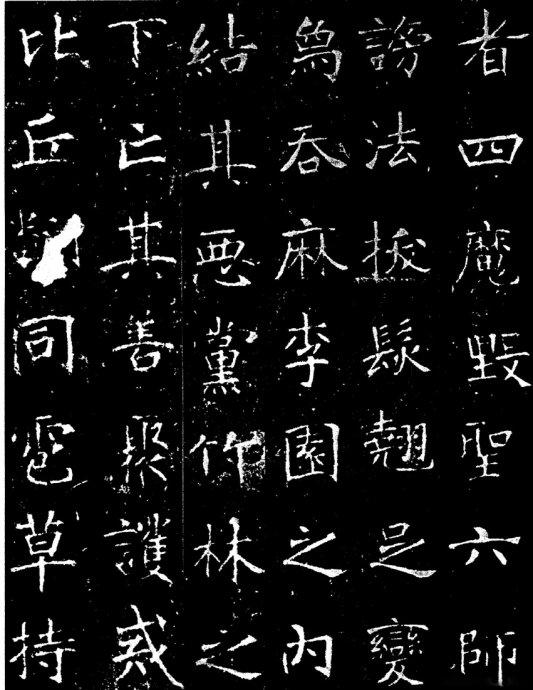 者四魔毀聖六師
謗法拔髮翹足變
為吞麻李園之內
結其惡黨竹林之
下亡其善聚護戒
比丘同雹草持